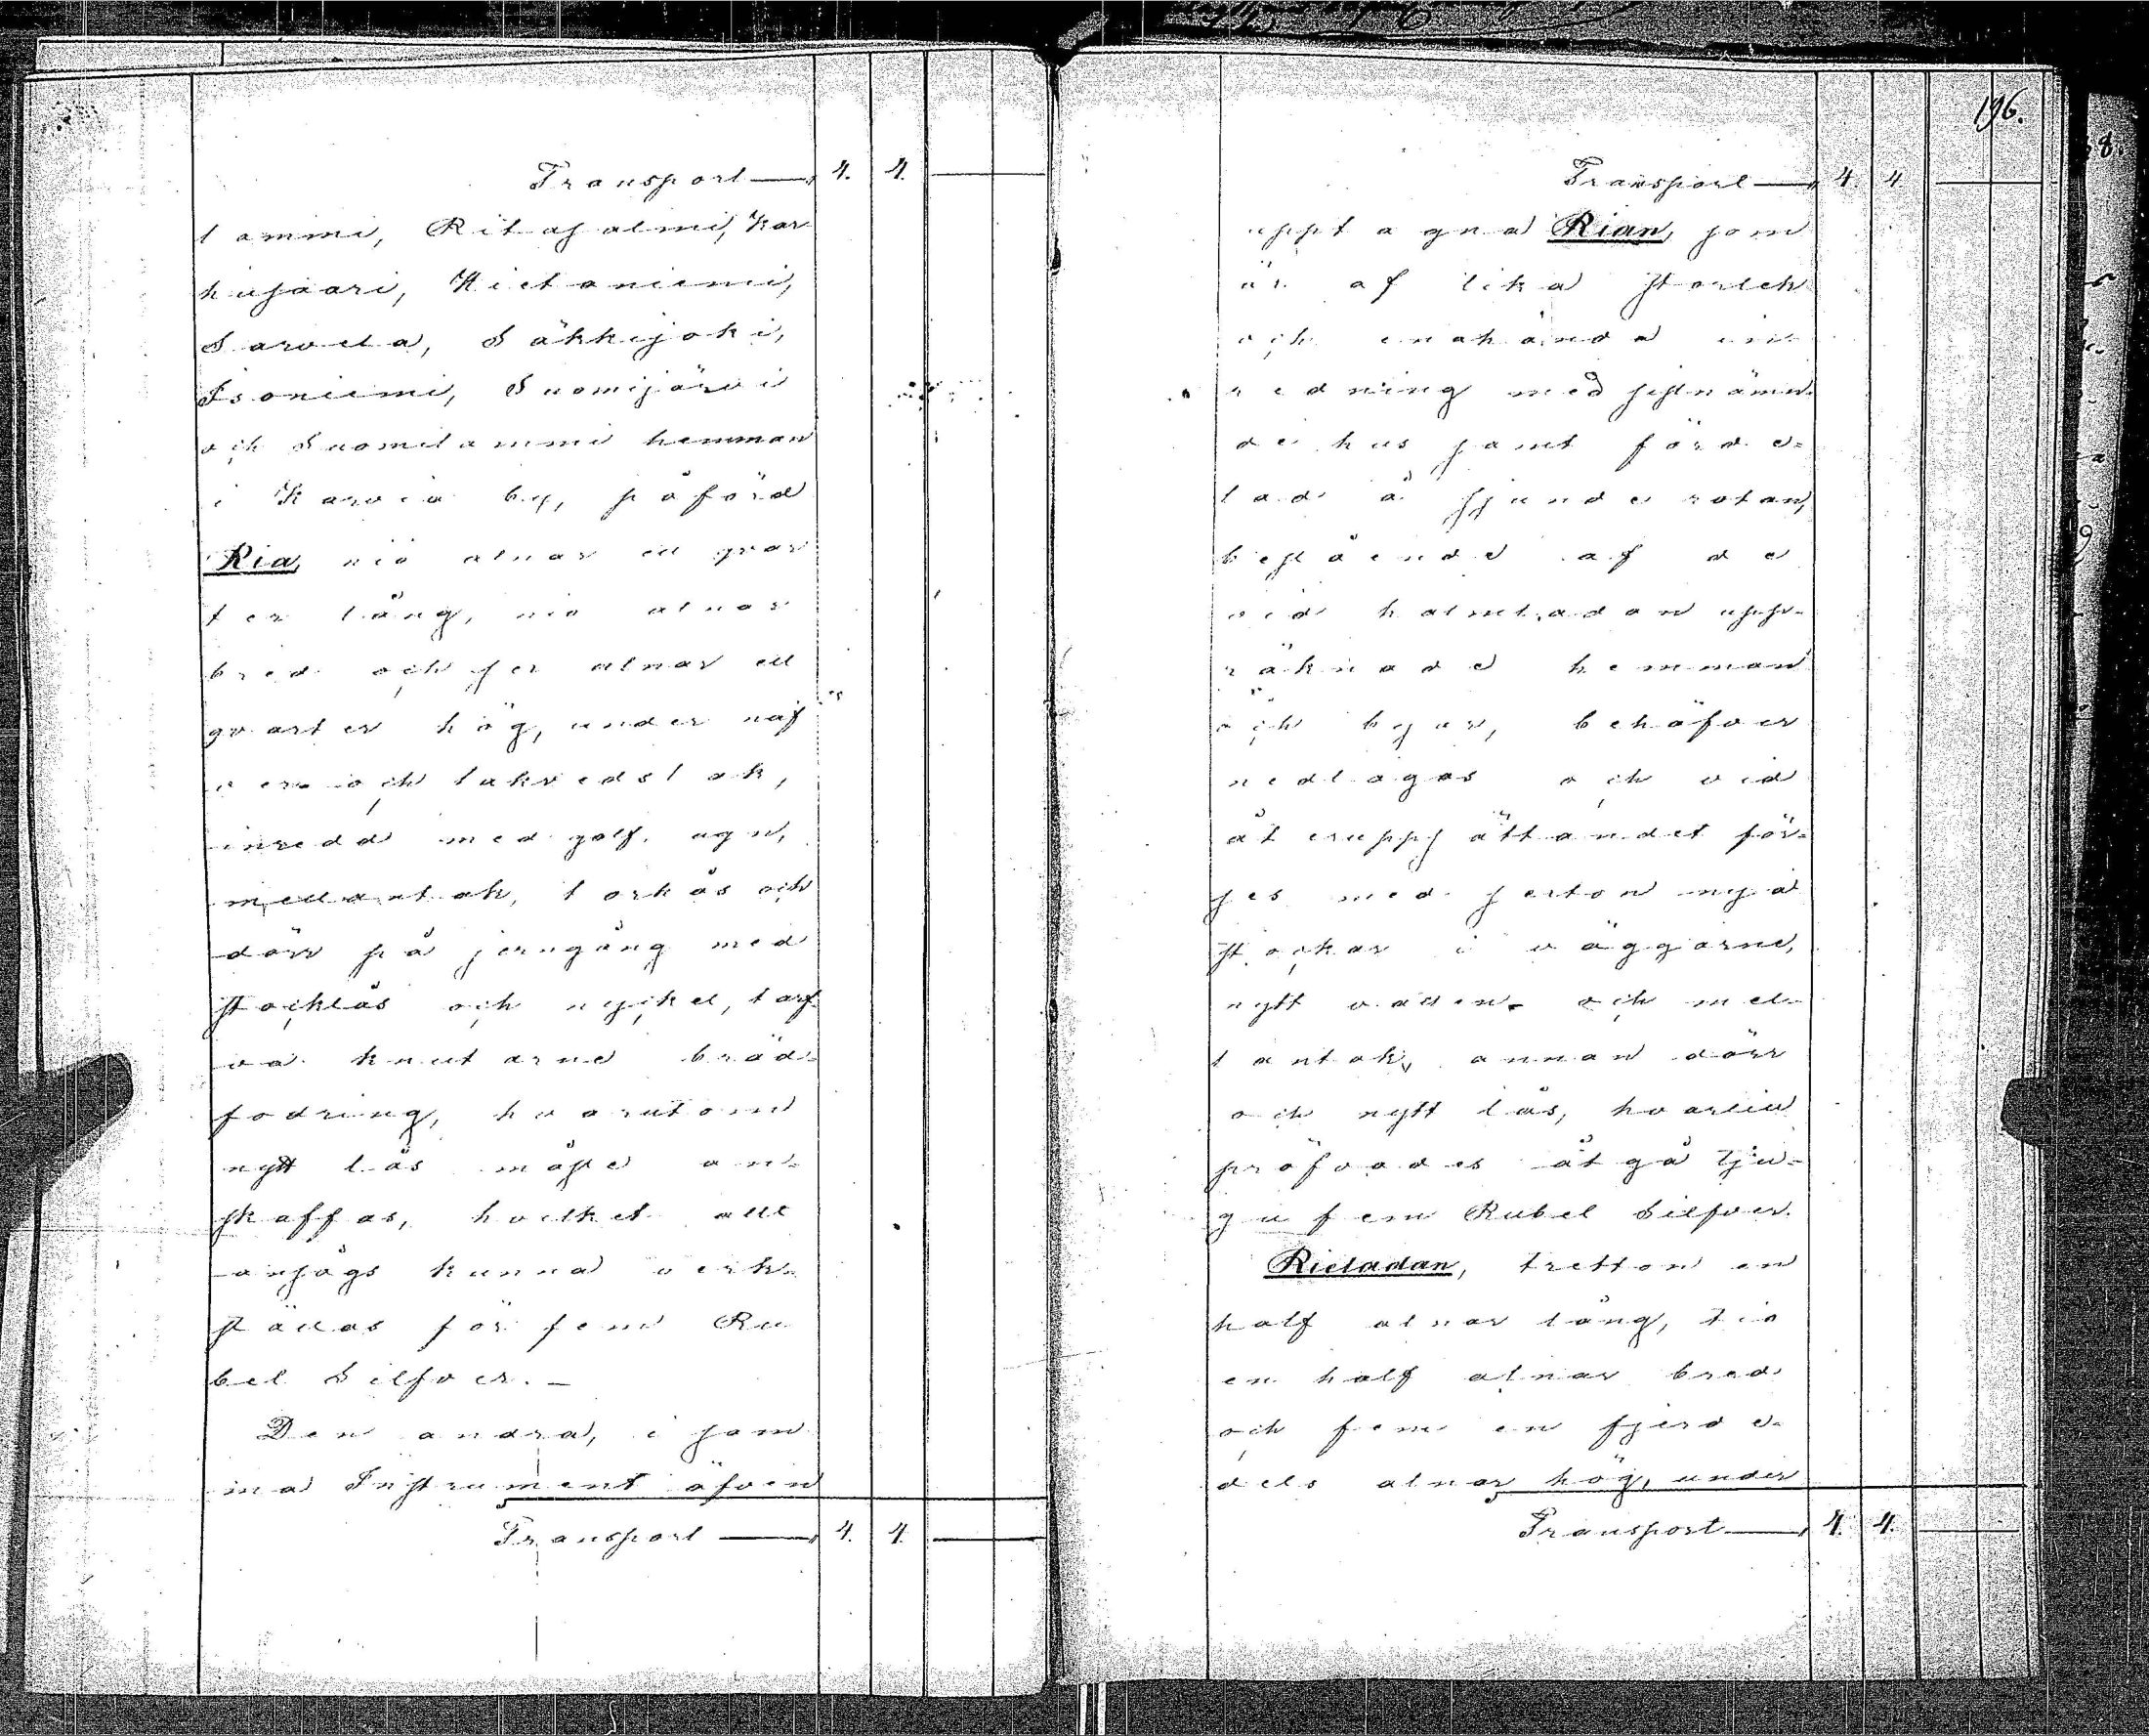 Transport 4. 4.
lammi, Ritasalmi, Kar
husaari, Hietaniemi,
Sarvela, Säkkijoki,
Isoniemi, Suomijärvi
och Suomilammi hemman
i Karvia by, påförd
Ria, nio alnar ett qvar
ter lång, nio alnar
bred och sex alnar ett
qvarter hög, under näf
ver- och takvedstak,
inredd med golf, ugn,
mellantak, torkås och
dörr på jerngång med
stocklås och nyckel, tarf-
va knutarne bräd-
fodring, hvarutom
nytt lås måste an-
skaffas, hvilket allt
ansågs kunna verk-
ställas för fem Ru
bel Silfver. -
Den andra, i sam
ma Instrument äfven
Transport 4. 4.
196.
Transport 4. 4
upptagna Rian, som
är af lika storlek
och enahanda in-
redning med sistnämn-
de hus samt förde-
lad å sjunde rotan,
bestående af de
vid halmladan upp-
räknade hemman
och byar, behöfver
nedtagas och vid
återuppsättandet för-
ses med sexton nya
stockar i väggarne,
nytt vatten- och mel-
lantak, annan dörr
och nytt lås, hvartill
pröfvades åtgå tju-
gufem Rubel Silfver.
Rieladan, tretton en
half alnar lång, tio
en half alnar bred
och fem en fjerde-
dels alnar hög, under
Transport 4. 4.